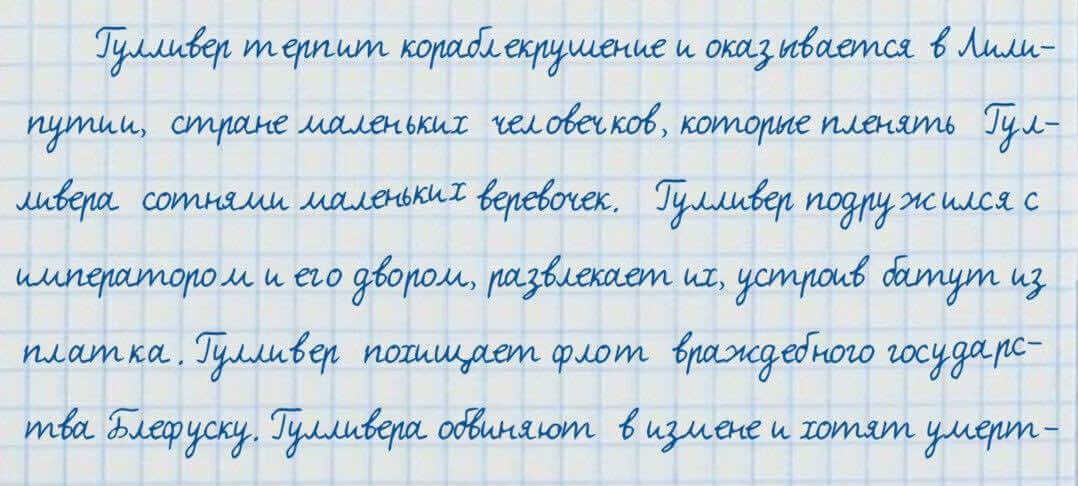 Гулливер терпит кораблекрушение и оказывается в Лили-
путии, стране маленьких человечков, которые пленять Гул-
ливера сотнями маленьких веревочек. Гулливер подружился с
императором и его двором, развлекает их, устроив батут из
платка. Гулливер похищает флот враждебного государс-
тва Блефуску. Гулливера обвиняют в измене и хотят умерт-